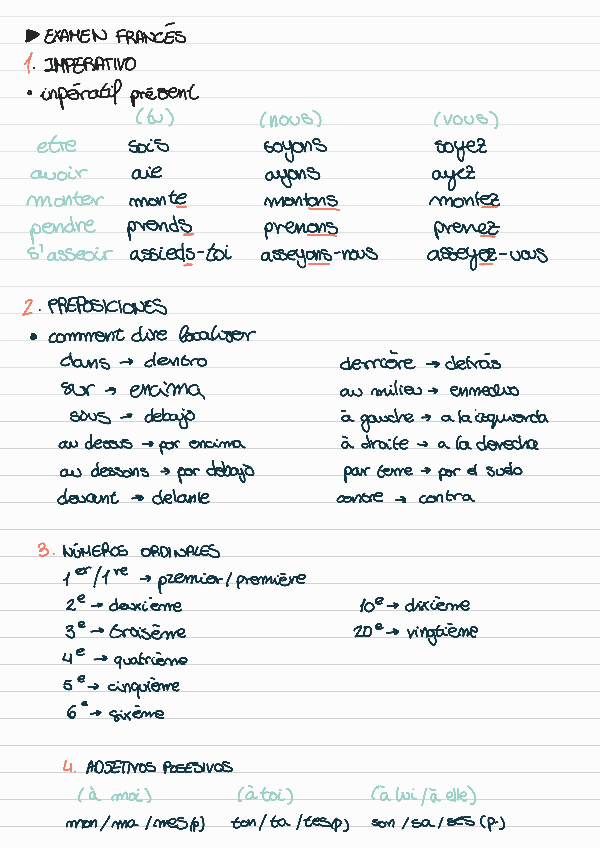 ▶ EXAMEN FRANCÉS
1. IMPERATIVO
• inpératif présent
(tu) (nous) (vous)
etre sois soyons soyez
avoir aie ayons ayez
monter monte montons montez
pendre prends prenons prenez
s'asseoir assieds-toi asseyons-nous asseyez-vous
2. PREPOSICIONES
• comment dire localiser
dans → dentro derrière → detrás
sur → encima au milieu → enmedio
sous → debajo à gauche → a la izquierda
au dessus → por encima à droite → a la derecha
au dessons → por debajo par terre → por el suelo
devant → delante contre → contra
3. NÚMEROS ORDINALES
1er/1re → premier/première
2e → deuxième 10e → dixième
3e → troisème 20e → vingtième
4e → quatrième
5e → cinquième
6e → sixème
4. ADJETIVOS POSESIVOS
(à moi) (à toi) (à lui/à elle)
mon/ma/mes(p) ton/ta/tes(p) son/sa/ses (p.)